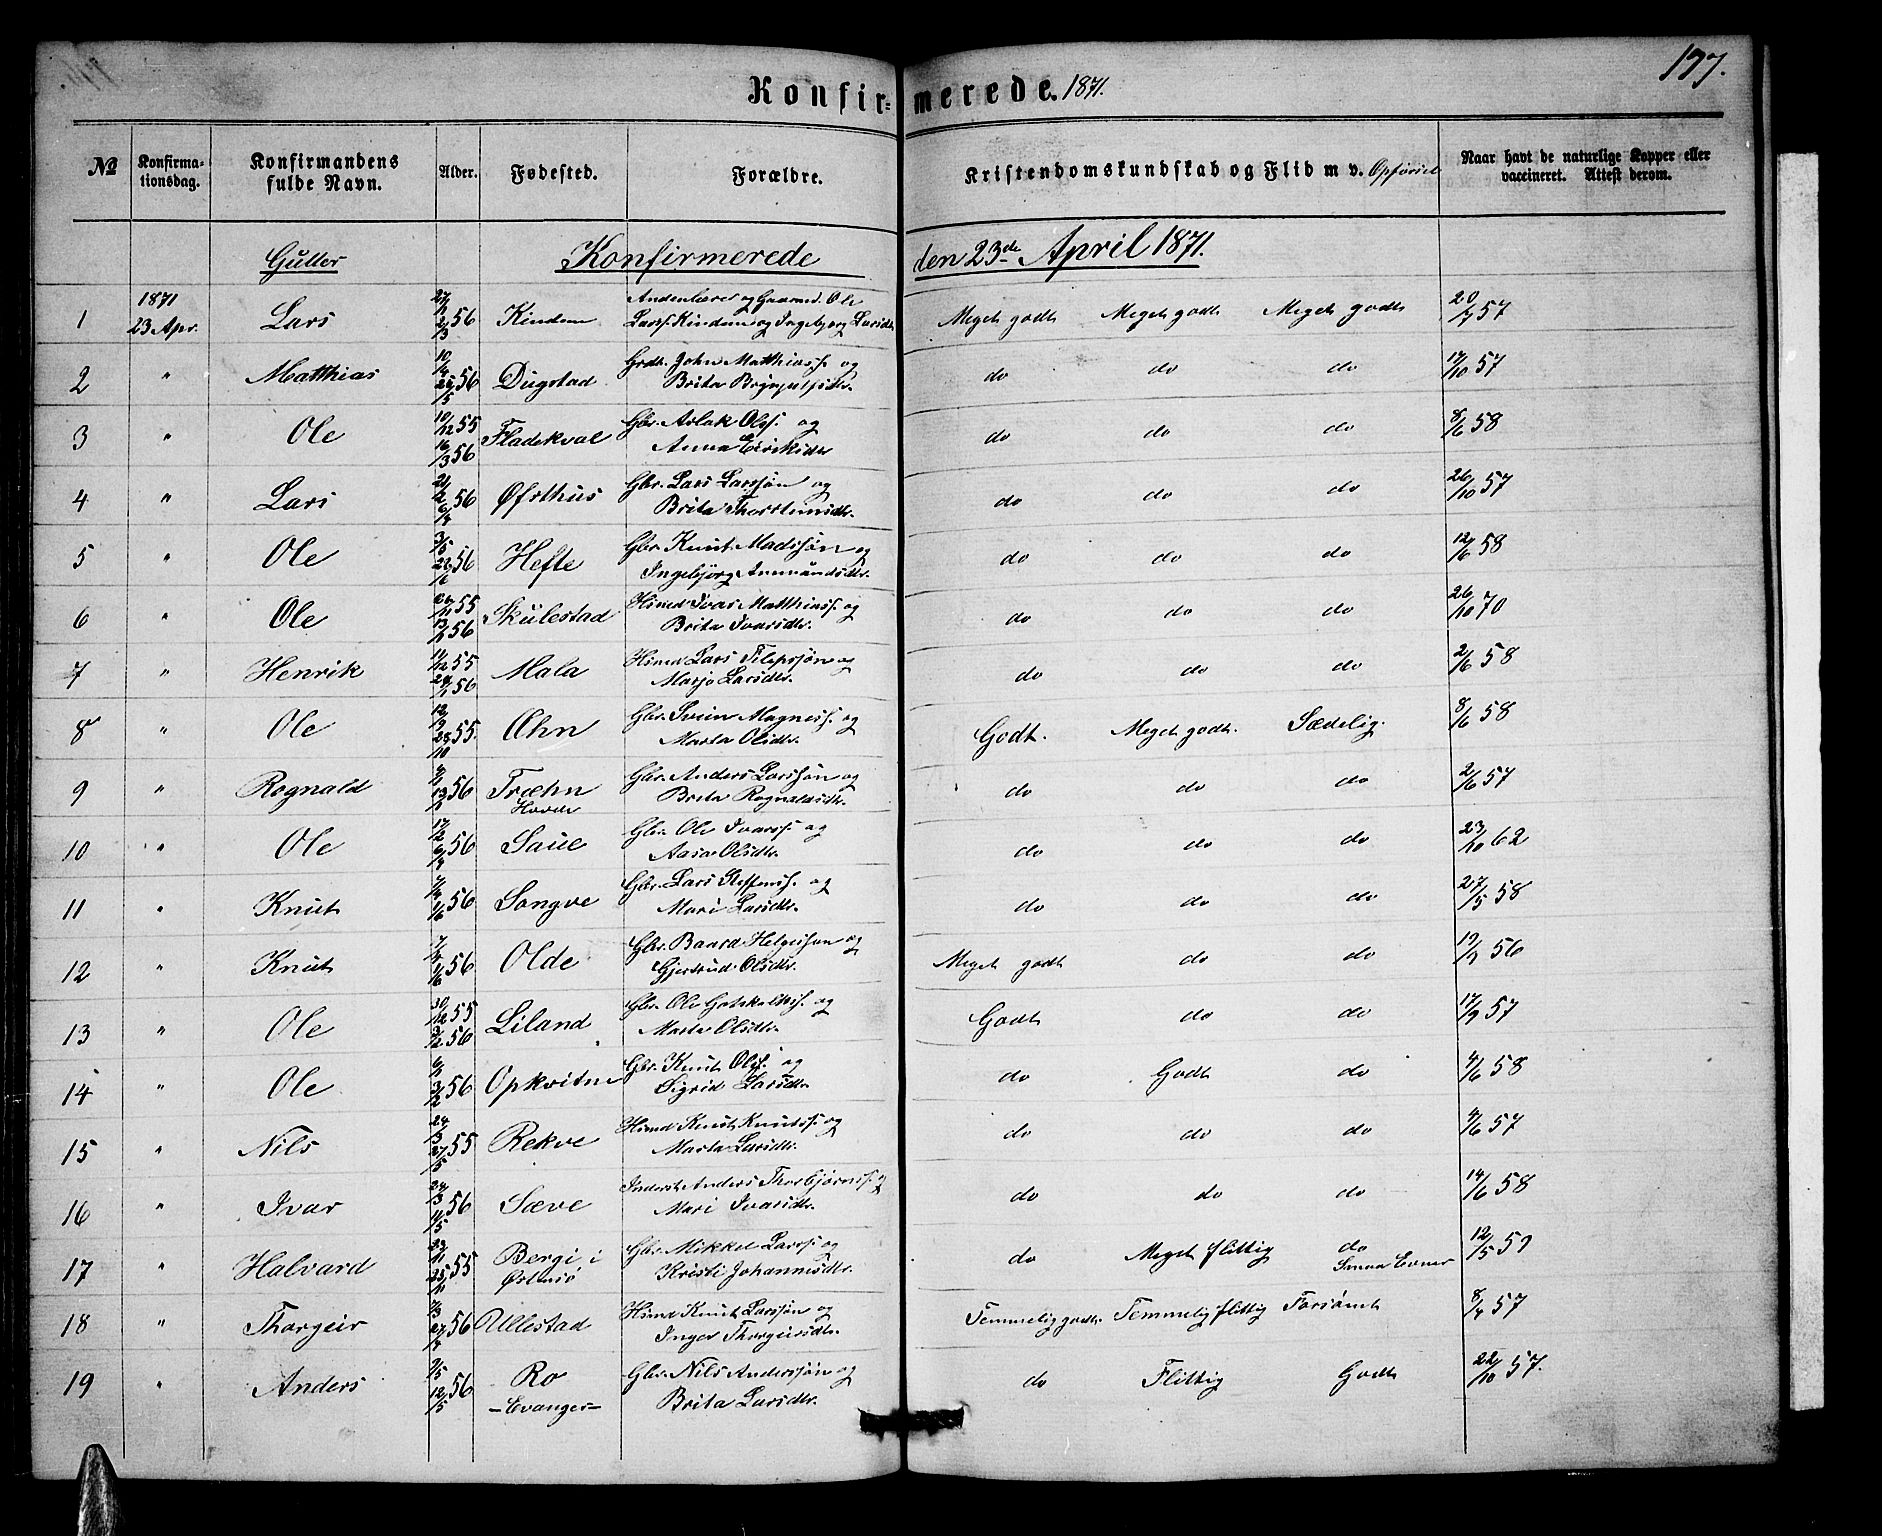 177.
Konfirmerede. 1871.
№ Konfirmationsdag. Konfirmandens fulde Navn. Alder. Fødested. Forældre. Kristendomskundskab og Flid m v. Opførsel Naar havt de naturlige Kopper eller vaccineret. Attest derom.
Gutter Konfirmerede den 23de April 1871.
1 1871 23 Apr. Lars 56 Kindem Gaardm. Ole Larss. Kindem og Ingebjørg Larsdtr. Meget godt Meget godt Meget godt 20/7 57
2 " Matthias 56 Dugstad John Matthiass. og Brita Brynjulfsdtr. do do do 17/10 57
3 " Ole 10/12 55 16/3 56 Fladekval Gbr. Aslak Olss. og Anna Eiriksdtr do do do 8/6 58
4 " Lars 56 Øfsthus Gbr. Lars Larssøn og Brita Thorsteinsdtr. do do do 26/10 57
5 " Ole 56 Hefte Gbr. Knut Madssøn og Ingebjørg Amundsdtr. do do do 12/6 58
6 " Ole 55 56 Skulestad Husmd Ivar Matthiass. og Brita Ivarsdtr. do do do 26/10 70
7 " Henrik 11/12 55 56 Mala Husmd Lars Filipssøn og Marjo Larsdtr. do do do 2/6 58
8 " Ole 12/9 28/10 55. Æhn Gbr. Svein Magness. og Marta Olsdtr. Godt. Meget godt. Sædelig. 8/6 58
9 " Rognald 56 Træhn Hovde Gbr. Anders Larssøn og Brita Rognaldsdtr. do do do 2/6 57
10 " Ole 17/2 56 Saue Gbr. Ole Ivarss. og Aasa Olsdtr. do do do 23/10 62
11 " Knut 56 Songve Gbr. Lars Steffenss. og Mari Larsdtr. do do do 27/5 58
12 " Knut 56 Olde Gbr. Baard Helgessøn og Gjertrud Olsdtr. Meget godt do do 56
13 " Ole 30/12 55 3/2 56 Liland Gbr. Ole Gotskalkss. og Marta Olsdtr. Godt do do 17/9 57
14 " Ole 6/1 3/2 56 Opkvitne Gbr. Knut Olss. og Sigrid Larsdtr. do Godt do 4/6 58
15 " Nils 55 Rekve Husmd Knut Knutss. og Marta Larsdtr. do do do 4/6 57
16 " Ivar 24/3 11/5 56 Sæve Inderst Anders Thorbjørnss. og Mari Ivarsdtr. do do do 14/6 58
17 " Halvard 23/11 25/11 55 Bergi i Østensø Gbr. Mikkel Larss. og Kristi Johannesdtr. do Meget flittig do Smaa Evner 12/5 59
18 " Thorgeir 56 Ullestad Husmd Knut Larssøn og Inger Thorgeirsdtr. Temmelig godt. Temmelig flittig Forsømt 8/7 57
19 " Anders 12/5 56 Ro -Evanger- Gbr. Nils Anderssøn og Brita Larsdtr. do Flittig Godt 22/10 57.